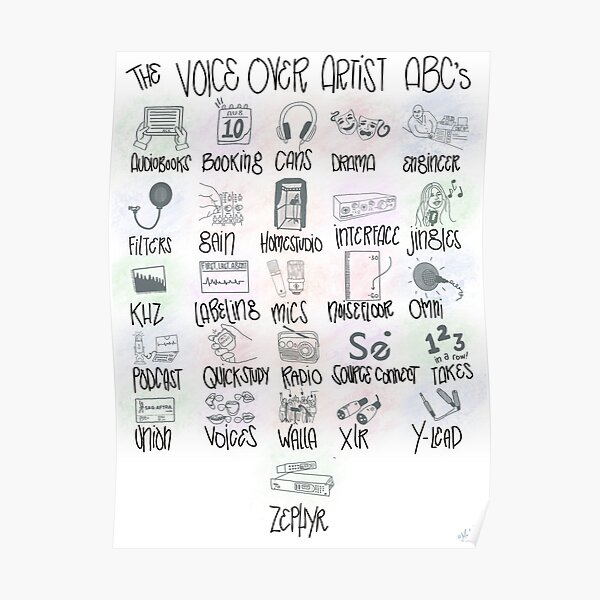 THE VOICE OVER ARTIST ABC's
AUG
10
AUDIOBOOKS BOOKING CANS DRAMA ENGINEER
FILTERS GAIN HOMESTUDIO INTERFACE JINGLES
FIRST_LAST_ABC(1)
-30
-60
KHZ LABELING MICS NOISEFLOOR OMNI
Se
123
in a row!
PODCAST QUICKSTUDY RADIO SOURCE CONNECT TAKES
SAG-AFTRA
UNION VOICES WALLA XLR Y-LEAD
ZEPHYR